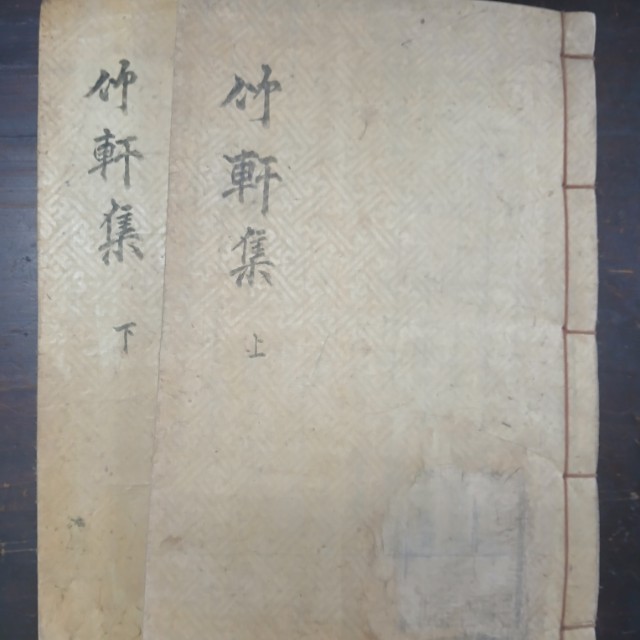 竹軒集 上
竹軒集 下